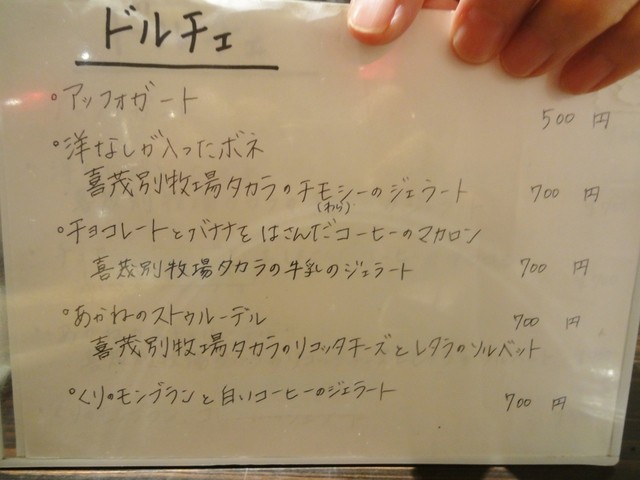 ドルチェ
・アッフォガート 500 円
・洋なしが入ったボネ
喜茂別牧場タカラのチモシーのジェラート 700 円
(わら)
・チョコレートとバナナをはさんだコーヒーのマカロン
喜茂別牧場タカラの牛乳のジェラート 700 円
・あかねのストゥルーデル 700 円
喜茂別牧場タカラのリコッタチーズとレタラのソルベット
・くりのモンブランと白いコーヒーのジェラート 700 円